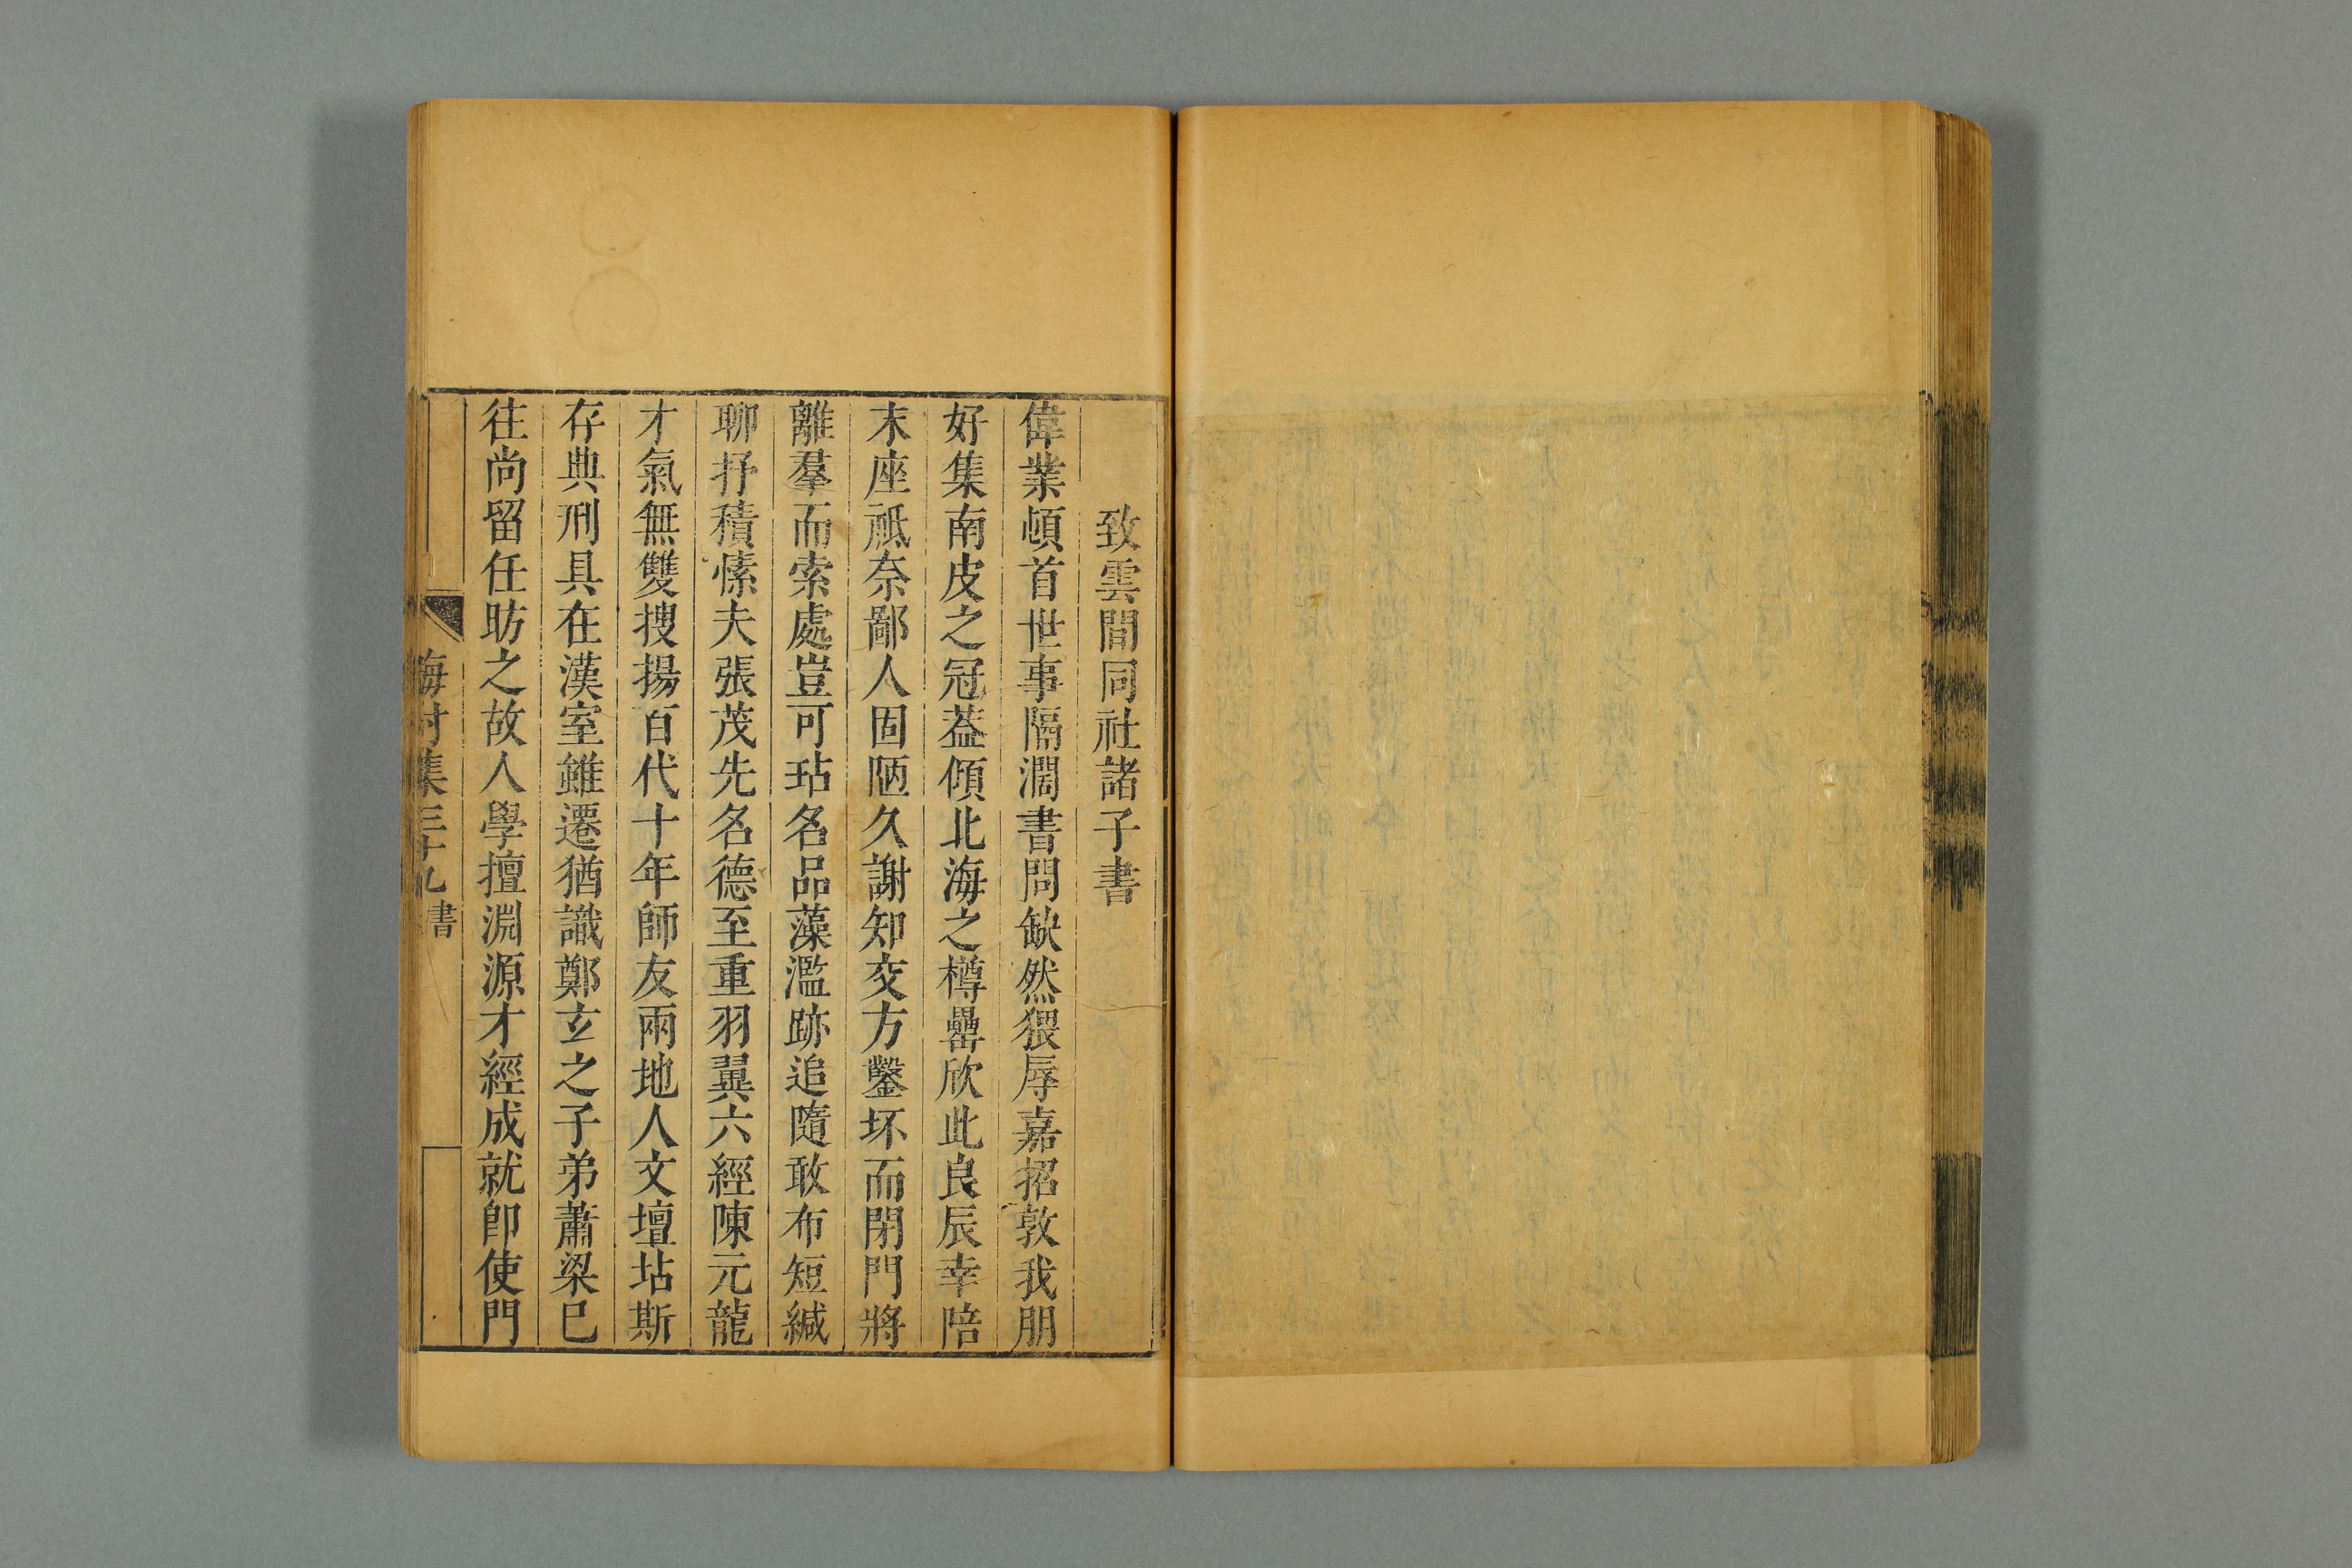 致雲間同社諸子書
偉業頓首世事隔濶書問缺然猥辱嘉招敦我朋
好集南皮之冠葢傾北海之樽罍欣此良辰幸陪
末座祗奈鄙人固陋久謝知交方鑿坏而閉門將
離羣而索處豈可玷名品藻濫跡追隨敢布短緘
聊抒積愫夫張茂先名德至重羽翼六經陳元龍
才氣無雙搜揚百代十年師友兩地人文壇坫斯
存典刑具在漢室雖遷猶識鄭玄之子弟蕭梁巳
往尚留任昉之故人學擅淵源才經成就卽使門
梅村集三十九 書